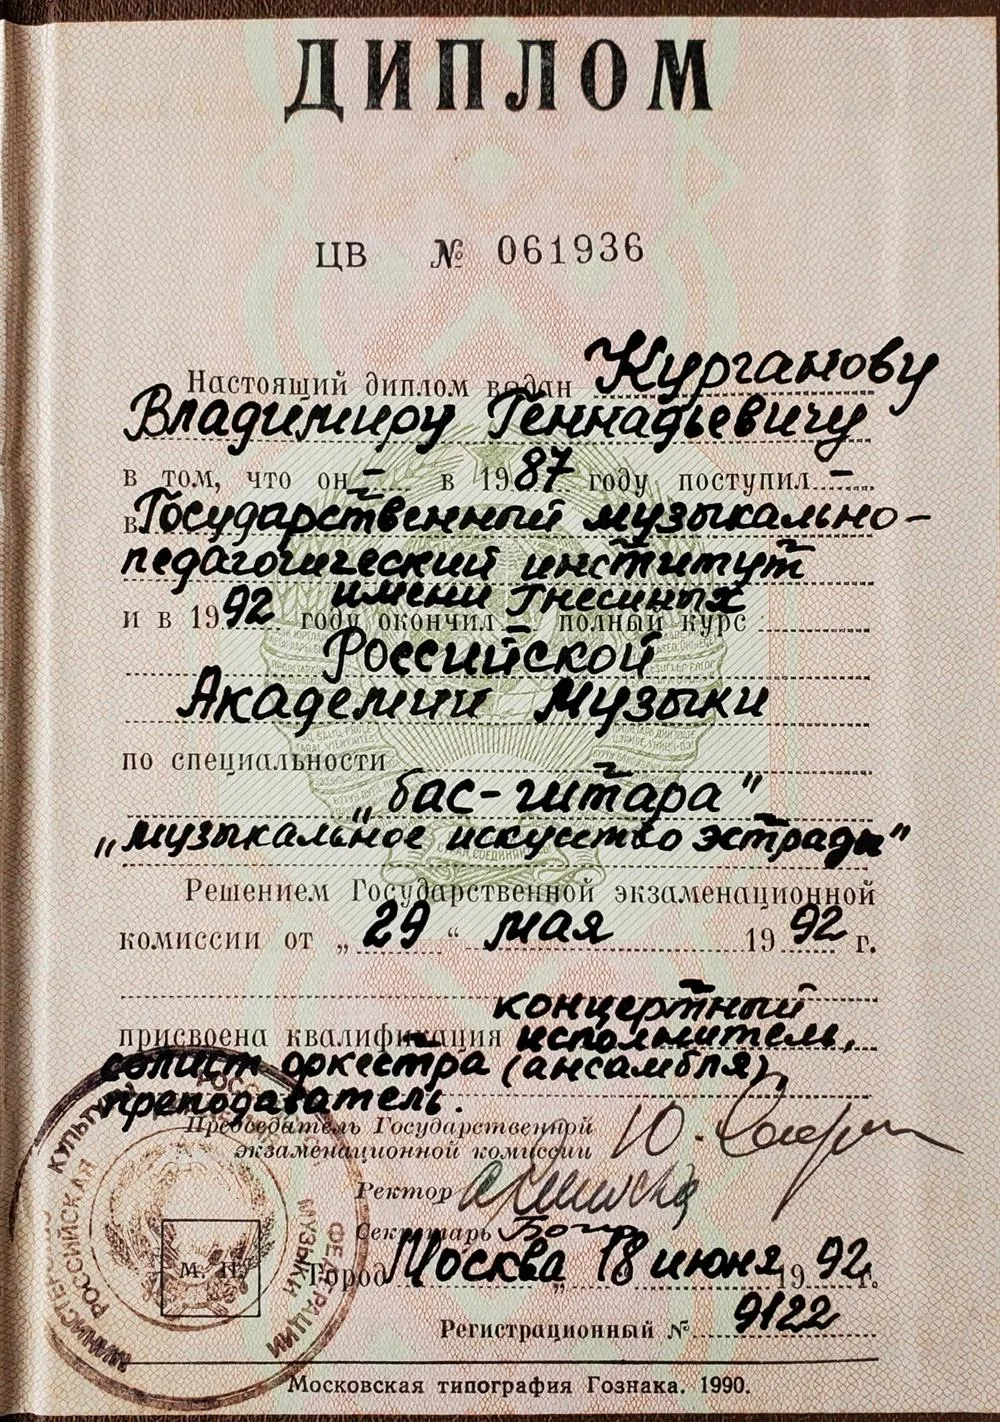 ДИПЛОМ
ЦВ № 061936
Настоящий диплом выдан Курганову
Владимиру Геннадьевичу
в том, что он – в 1987 году поступил –
в Государственный музыкально-
педагогический институт
имени Гнесиных
и в 1992 году окончил – полный курс
Российской
Академии Музыки
по специальности
„бас-гитара"
„музыкальное искусство эстрады"
Решением Государственной экзаменационной
комиссии от „29“ мая 1992 г.
концертный
присвоена квалификация исполнитель,
солист оркестра (ансамбля),
преподаватель.
Председатель Государственной
экзаменационной комиссии
Ректор
Секретарь
Город Москва „18 июня 1992 г.
М. П.
Регистрационный № 9122
МИНИСТЕРСТВО КУЛЬТУРЫ РОССИЙСКОЙ ФЕДЕРАЦИИ
РОССИЙСКАЯ МУЗЫКИ
Московская типография Гознака. 1990.